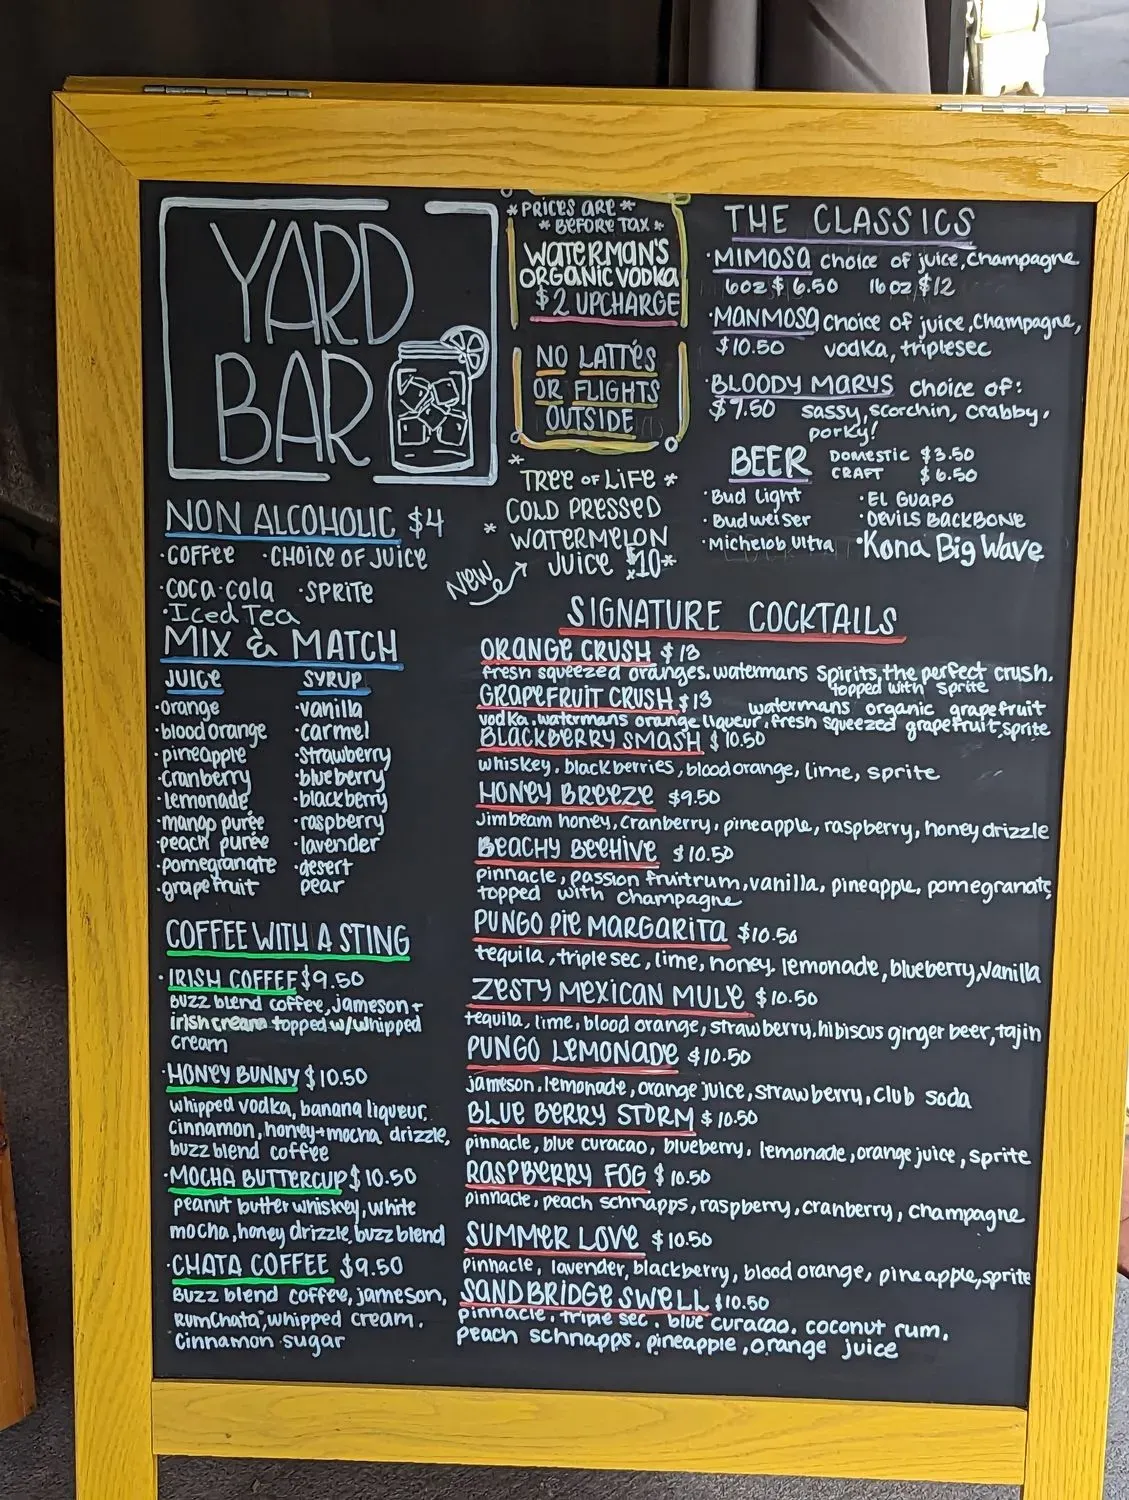 YARD
BAR
*PRICES ARE*
*BEFORE TAX*
WATERMAN'S
ORGANIC VODKA
$2 UPCHARGE
NO LATTÉS
OR FLIGHTS
OUTSIDE
*TREE OF LIFE*
COLD PRESSED
*WATERMELON
JUICE $10*
NEW
THE CLASSICS
·MIMOSA choice of juice, champagne
6oz $6.50 16oz $12
·MANMOSA choice of juice, champagne,
$10.50 vodka, triplesec
·BLOODY MARYS choice of:
$9.50 sassy, scorchin, crabby,
porky!
BEER DOMESTIC $3.50
CRAFT $6.50
·Bud Light ·EL GUAPO
·Budweiser ·DEVILS BACKBONE
·Michelob Ultra ·Kona Big Wave
NON ALCOHOLIC $4
·COFFEE ·CHOICE OF JUICE
·COCA-COLA ·SPRITE
·Iced Tea
MIX & MATCH
JUICE SYRUP
·orange ·vanilla
·blood orange ·carmel
·pineapple ·strawberry
·cranberry ·blueberry
·lemonade ·blackberry
·mango purée ·raspberry
·peach purée ·lavender
·pomegranate ·desert
·grapefruit pear
COFFEE WITH A STING
·IRISH COFFEE $9.50
buzz blend coffee, jameson +
irish cream topped w/whipped
cream
·HONEY BUNNY $10.50
whipped vodka, banana liqueur,
cinnamon, honey+mocha drizzle,
buzz blend coffee
·MOCHA BUTTERCUP $10.50
peanut butter whiskey, white
mocha, honey drizzle, buzz blend
·CHATA COFFEE $9.50
Buzz blend coffee, jameson,
RumChata, whipped cream,
cinnamon sugar
SIGNATURE COCKTAILS
ORANGE CRUSH $13
fresh squeezed oranges, watermans spirits, the perfect crush,
topped with sprite
GRAPEFRUIT CRUSH $13 watermans organic grapefruit
vodka, watermans orange liqueur, fresh squeezed grapefruit, sprite
BLACKBERRY SMASH $10.50
whiskey, blackberries, blood orange, lime, sprite
HONEY BREEZE $9.50
Jimbeam honey, cranberry, pineapple, raspberry, honey drizzle
BEACHY BEEHIVE $10.50
pinnacle, passion fruit rum, vanilla, pineapple, pomegranate
topped with champagne
PUNGO PIE MARGARITA $10.50
tequila, triple sec, lime, honey, lemonade, blueberry, vanilla
ZESTY MEXICAN MULE $10.50
tequila, lime, blood orange, strawberry, hibiscus ginger beer, tajin
PUNGO LEMONADE $10.50
jameson, lemonade, orange juice, strawberry, club soda
BLUE BERRY STORM $10.50
pinnacle, blue curacao, blueberry, lemonade, orange juice, sprite
RASPBERRY FOG $10.50
pinnacle, peach schnapps, raspberry, cranberry, champagne
SUMMER LOVE $10.50
pinnacle, lavender, blackberry, blood orange, pineapple, sprite
SANDBRIDGE SWELL $10.50
pinnacle, triple sec, blue curacao, coconut rum,
peach schnapps, pineapple, orange juice